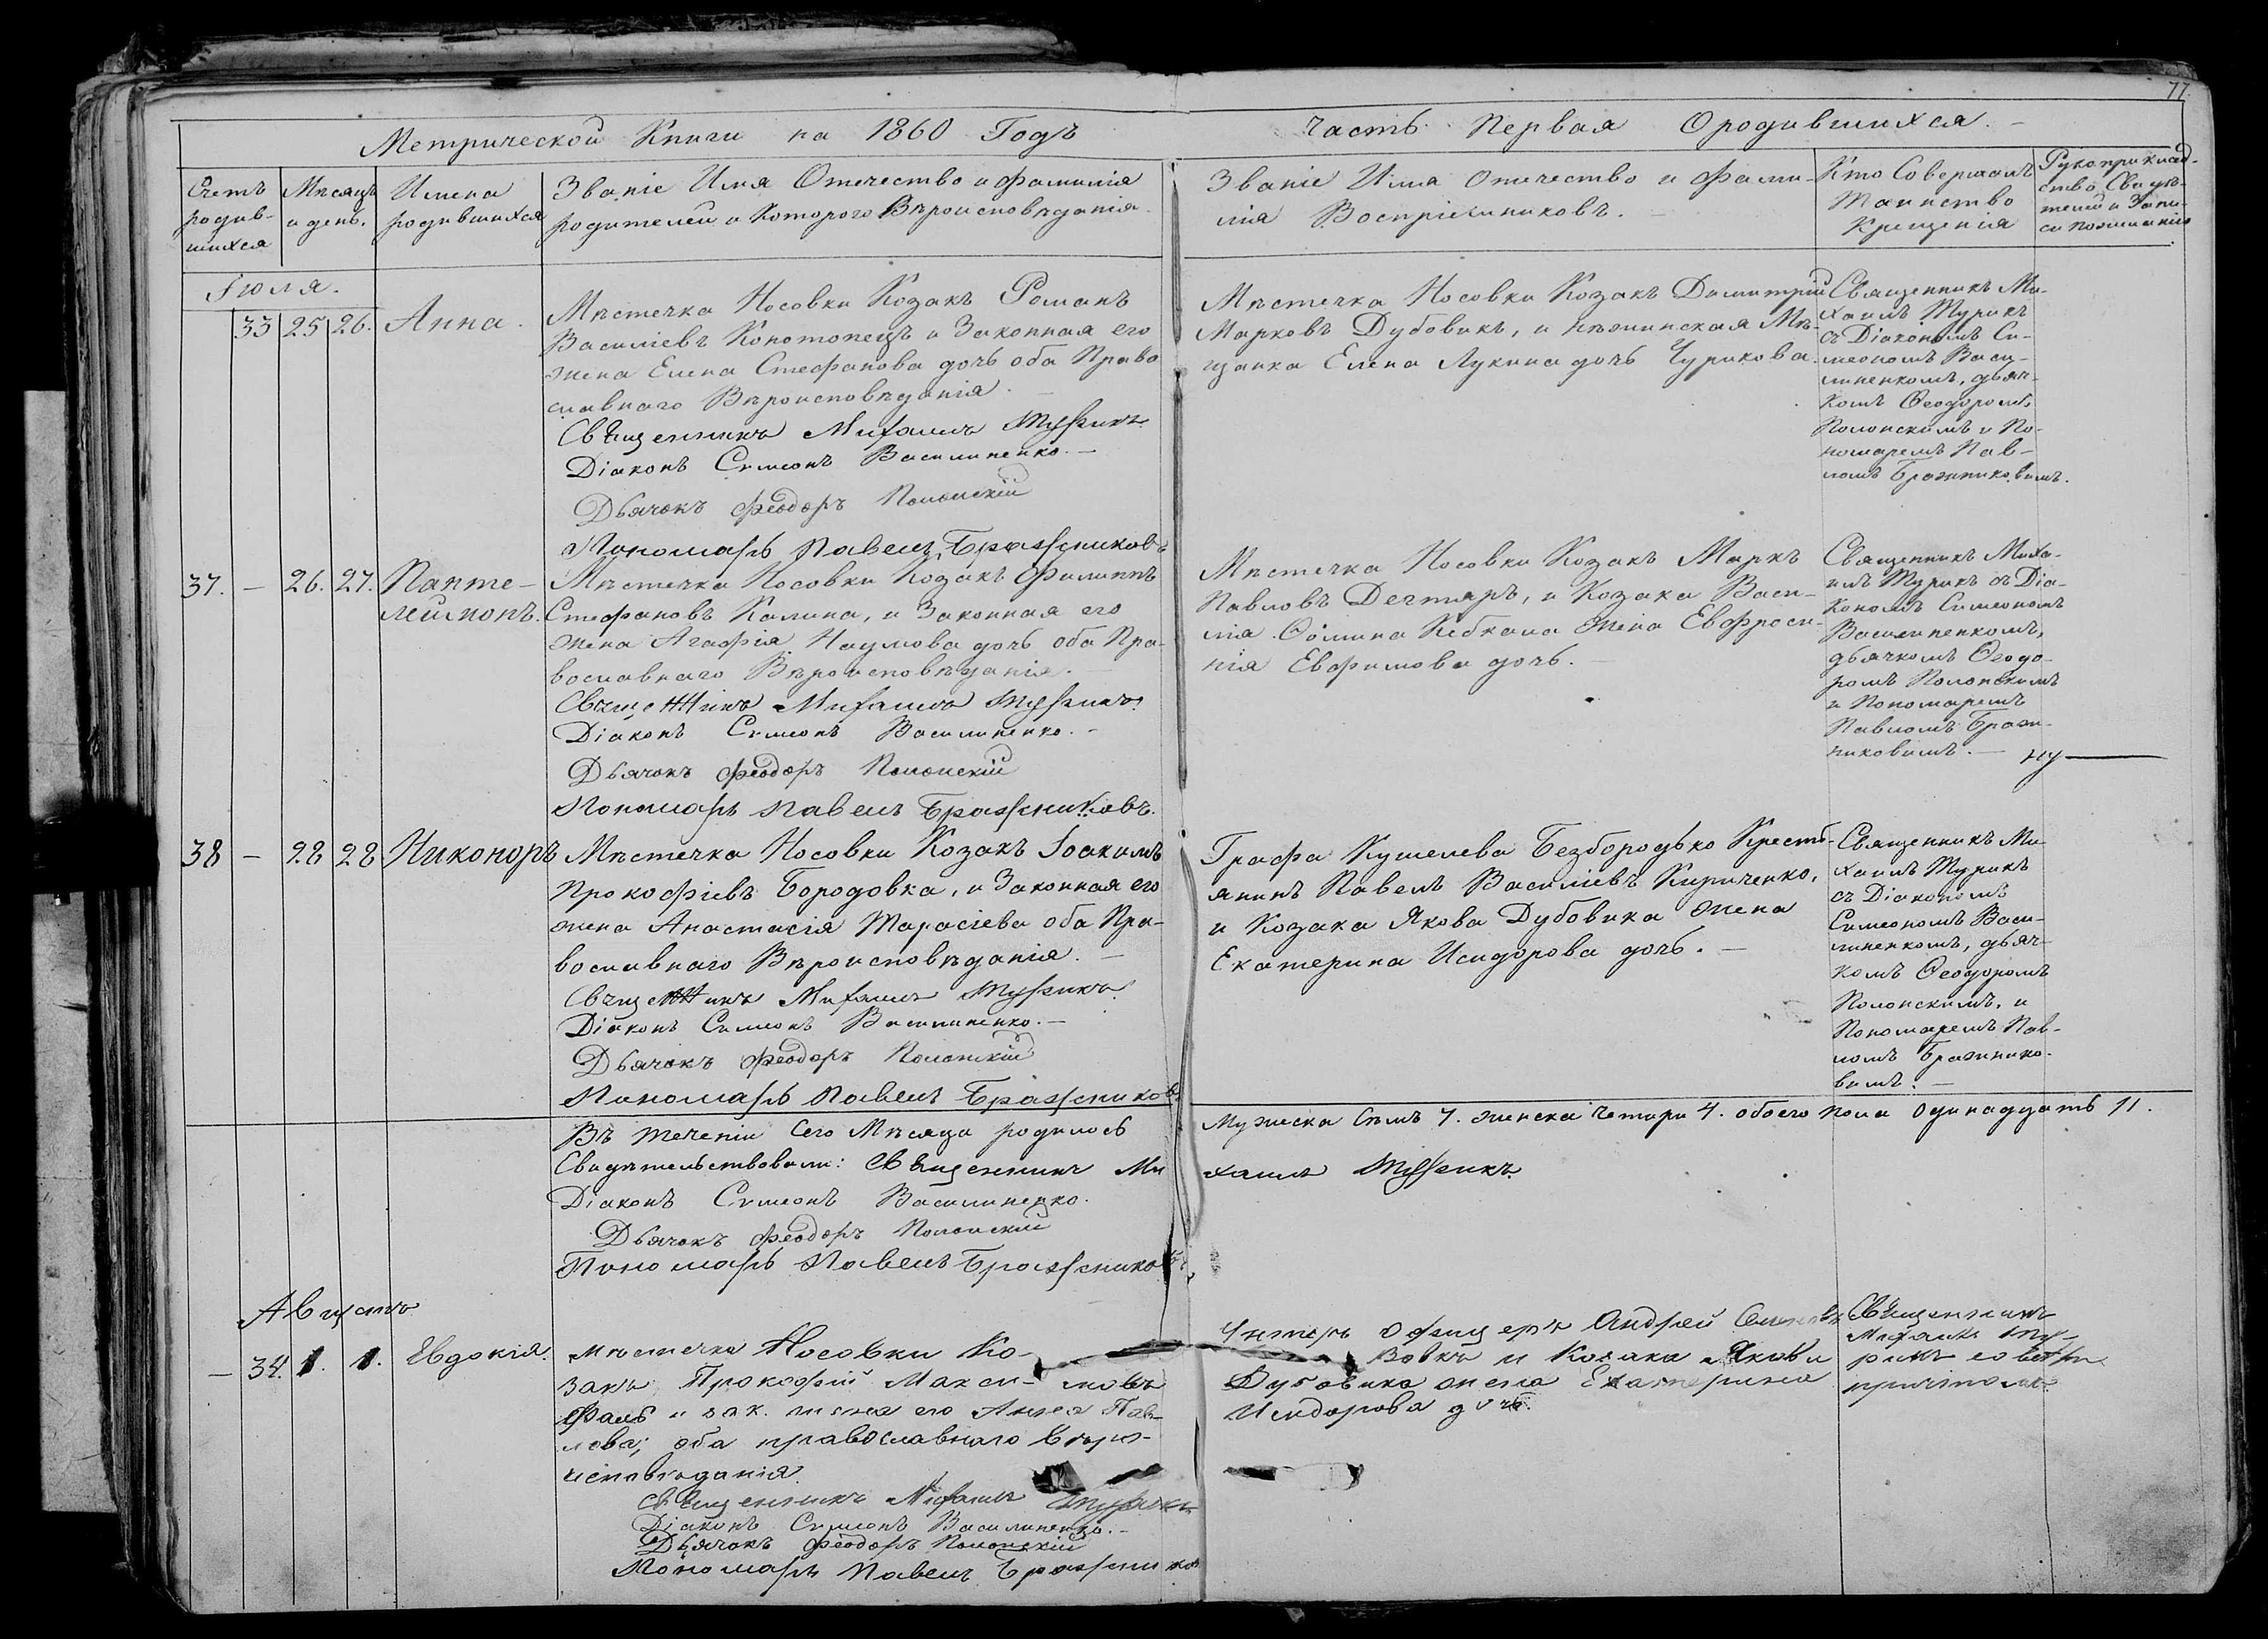 77
Метрической Книги на 1860 Годъ
Часть Первая О родившихся.
Счетъ родив-шихся
Мѣсяцъ и день.
Имена родившихся
Званіе Имя Отечество и фамилія
родителей и Которого Вѣроисповѣданія
Званіе Имя Отечество и Фами-
лія Воспріемниковъ.
Кто Совершалъ
Таинство
Крещенія
Рукоприклад-
ство Свидѣ-
телей и Запи-
си по желанію
Іюля.
33 25 26. Анна.
Мѣстечка Носовки Козакъ Романъ
Василіевъ Конотопецъ и Законная его
жена Елена Стефанова дочь оба Право
славнаго Вѣроисповѣданія.
Священникъ Михаилъ Турикъ
Діаконъ Симеонъ Василиненко.
Дьячокъ Феодоръ Полонскій
Пономарь Павелъ Бражниковъ
Мѣстечка Носовки Козакъ Димитрій
Марковъ Дубовикъ, и нѣжинская Мѣ-
щанка Елена Лукина дочь Чурикова.
Священникъ Ми-
хаилъ Турикъ
съ Діакономъ Си-
меономъ Васи-
линенкомъ, дьяч-
комъ Ѳеодоромъ
Полонскимъ и По-
номаремъ Пав-
ломъ Бражниковимъ.
37. – 26. 27. Панте-
леймонъ.
Мѣстечка Носовки Козакъ Филиппъ
Стефановъ Калина, и Законная его
жена Агафія Наумова дочь оба Пра-
вославнаго Вѣроисповѣданія.
Священникъ Михаилъ Турикъ
Діаконъ Симеонъ Василиненко.
Дьячокъ Феодоръ Полонскій
Пономарь Павелъ Бражниковъ.
Мѣстечка Носовки Козакъ Маркъ
Павловъ Дегтяръ, и Козака Васи-
лія Ѳомина Кебкала жена Евфроси-
нія Евфимова дочь.
Священникъ Миха-
илъ Турикъ съ Діа-
кономъ Симеономъ
Василиненкомъ,
дьячкомъ Ѳеодо-
ромъ Полонскимъ
и Пономаремъ
Павломъ Браж-
никовимъ.
38 – 28 28 Никоноръ
Мѣстечка Носовки Козакъ Іоакимъ
Прокофіевъ Бородовка, и Законная его
жена Анастасія Тарасіева оба Пра-
вославнаго Вѣроисповѣданія.
Священникъ Михаилъ Турикъ
Діаконъ Симеонъ Василиненко.
Дьячокъ Феодоръ Полонскій
Пономарь Павелъ Бражниковъ
Графа Кушелева Безбородько Кресть-
янинъ Павелъ Василіевъ Кириченко,
и Козака Якова Дубовика жена
Екатерина Исидорова дочь.
Священникъ Ми-
хаилъ Турикъ
съ Діакономъ
Симеономъ Васи-
линенкомъ, дьяч-
комъ Ѳеодоромъ
Полонскимъ, и
Пономаремъ Пав-
ломъ Бражнико-
вимъ.
Въ теченіи Сего Мѣсяца родилось
Мужеска Сѣмъ 7. женска Четири 4. обоего пола Одинадцать 11.
Свидѣтельствовали: Священникъ Ми
хаилъ Турикъ
Діаконъ Симеонъ Василиненко.
Дьячокъ Феодоръ Полонскій
Пономарь Павелъ Бражниковъ
Августъ
– 34. 1. 1. Евдокія.
Мѣстечка Носовки Ко-
закъ Прокофій Макси-мовъ
Фаль и зак. жена его Анна Пав-
лова; оба православнаго вѣро-
исповѣданія.
Священникъ Михаилъ Турикъ
Діаконъ Симеонъ Василиненко.
Дьячокъ Феодоръ Полонскій
Пономарь Павелъ Бражников
Унтеръ Офицеръ Андрей
Вовкъ и Козака Якова
Дубовика жена Екатерина
Исидорова дочь.
Священникъ
Михаилъ Ту-
рикъ со
причтомъ.